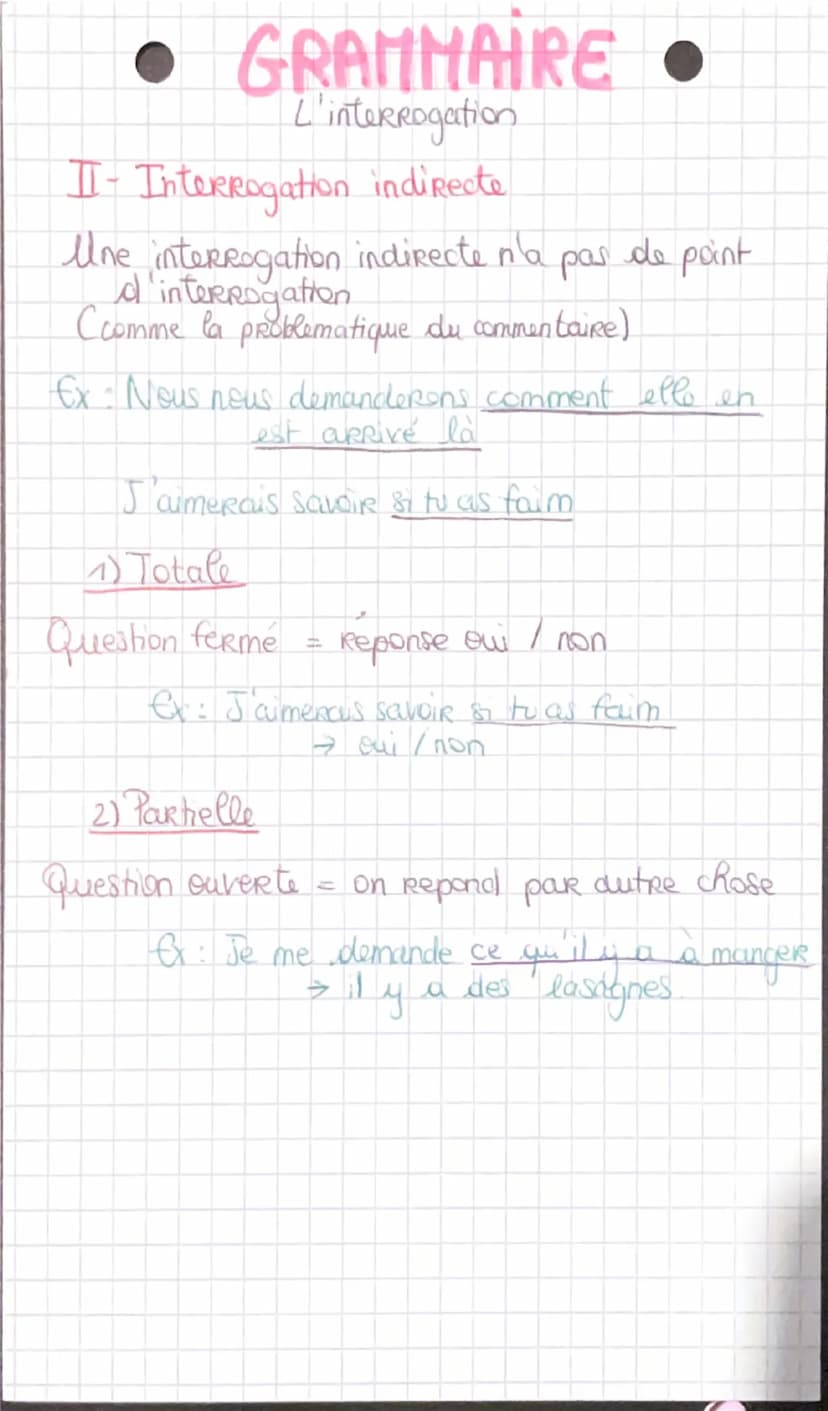 GRAMMAIRE
L'interrogation
II- Interrogation indirecte
Une interrogation indirecte n'a pas de point
d'interrogation
(comme la problématique du commentaire)
Ex : Nous nous demanderons comment elle en
est arrivé là
J'aimerais savoir si tu as faim
1) Totale
Question fermé = réponse oui / non
Ex : J'aimerais savoir si tu as faim
→ oui / non
2) Partielle
Question ouverte = on repond par autre chose
Ex : Je me demande ce qu'il y a à manger
→ il y a des lasagnes